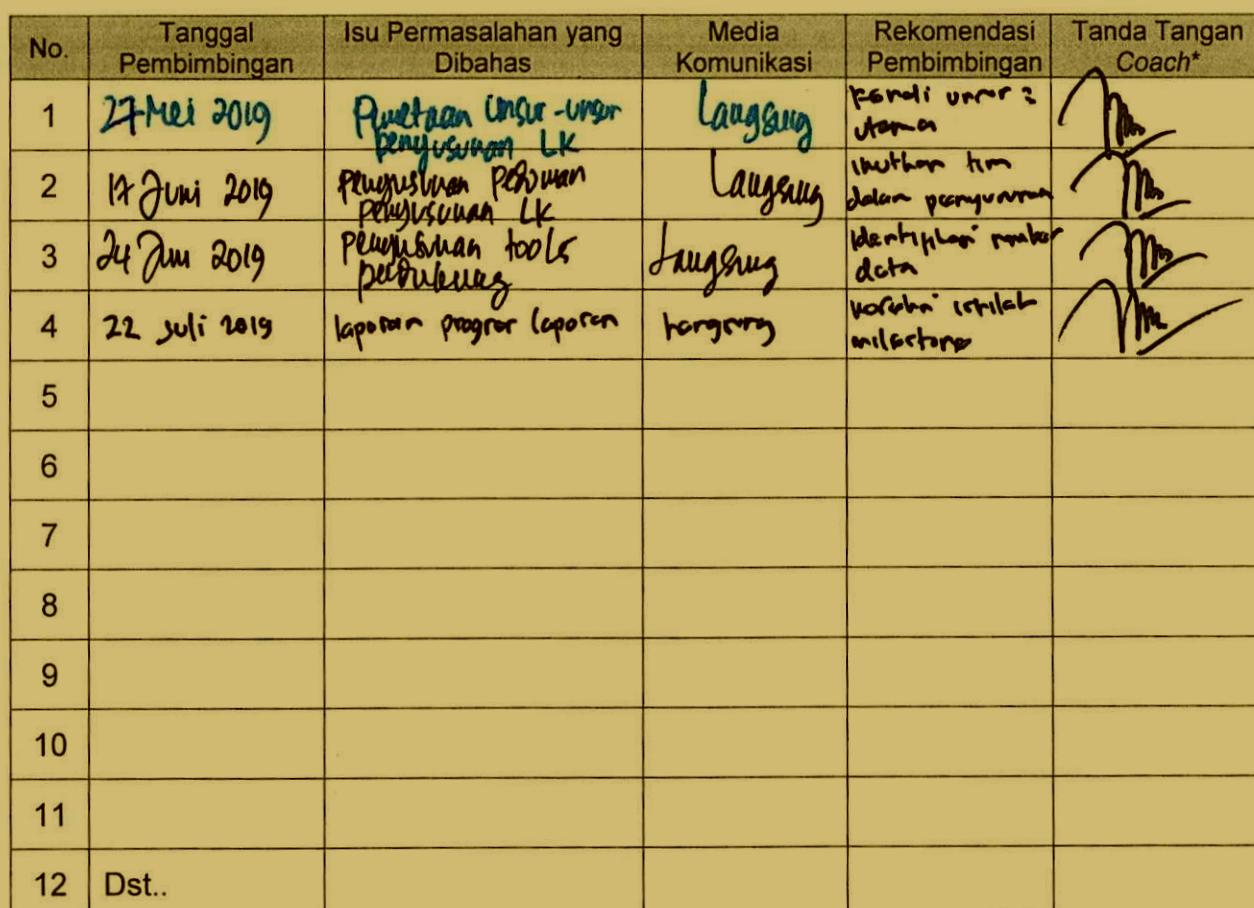 No.
Tanggal
Pembimbingan
Isu Permasalahan yang
Dibahas
Media
Komunikasi
Rekomendasi
Pembimbingan
Tanda Tangan
Coach*
1
27 Mei 2019
Pemetaan unsur-unsur
penyusunan LK
Langsung
utama
2
17 Juni 2019
penyusunan pedoman
penyusunan LK
Langsung
tim
dalam penyusunan
3
24 Juni 2019
penyusunan tools
pendukung
Langsung
identifikasi sumber
data
4
22 Juli 2019
laporan progres laporan
langsung
istilah
milestone
5
6
7
8
9
10
11
12
Dst..